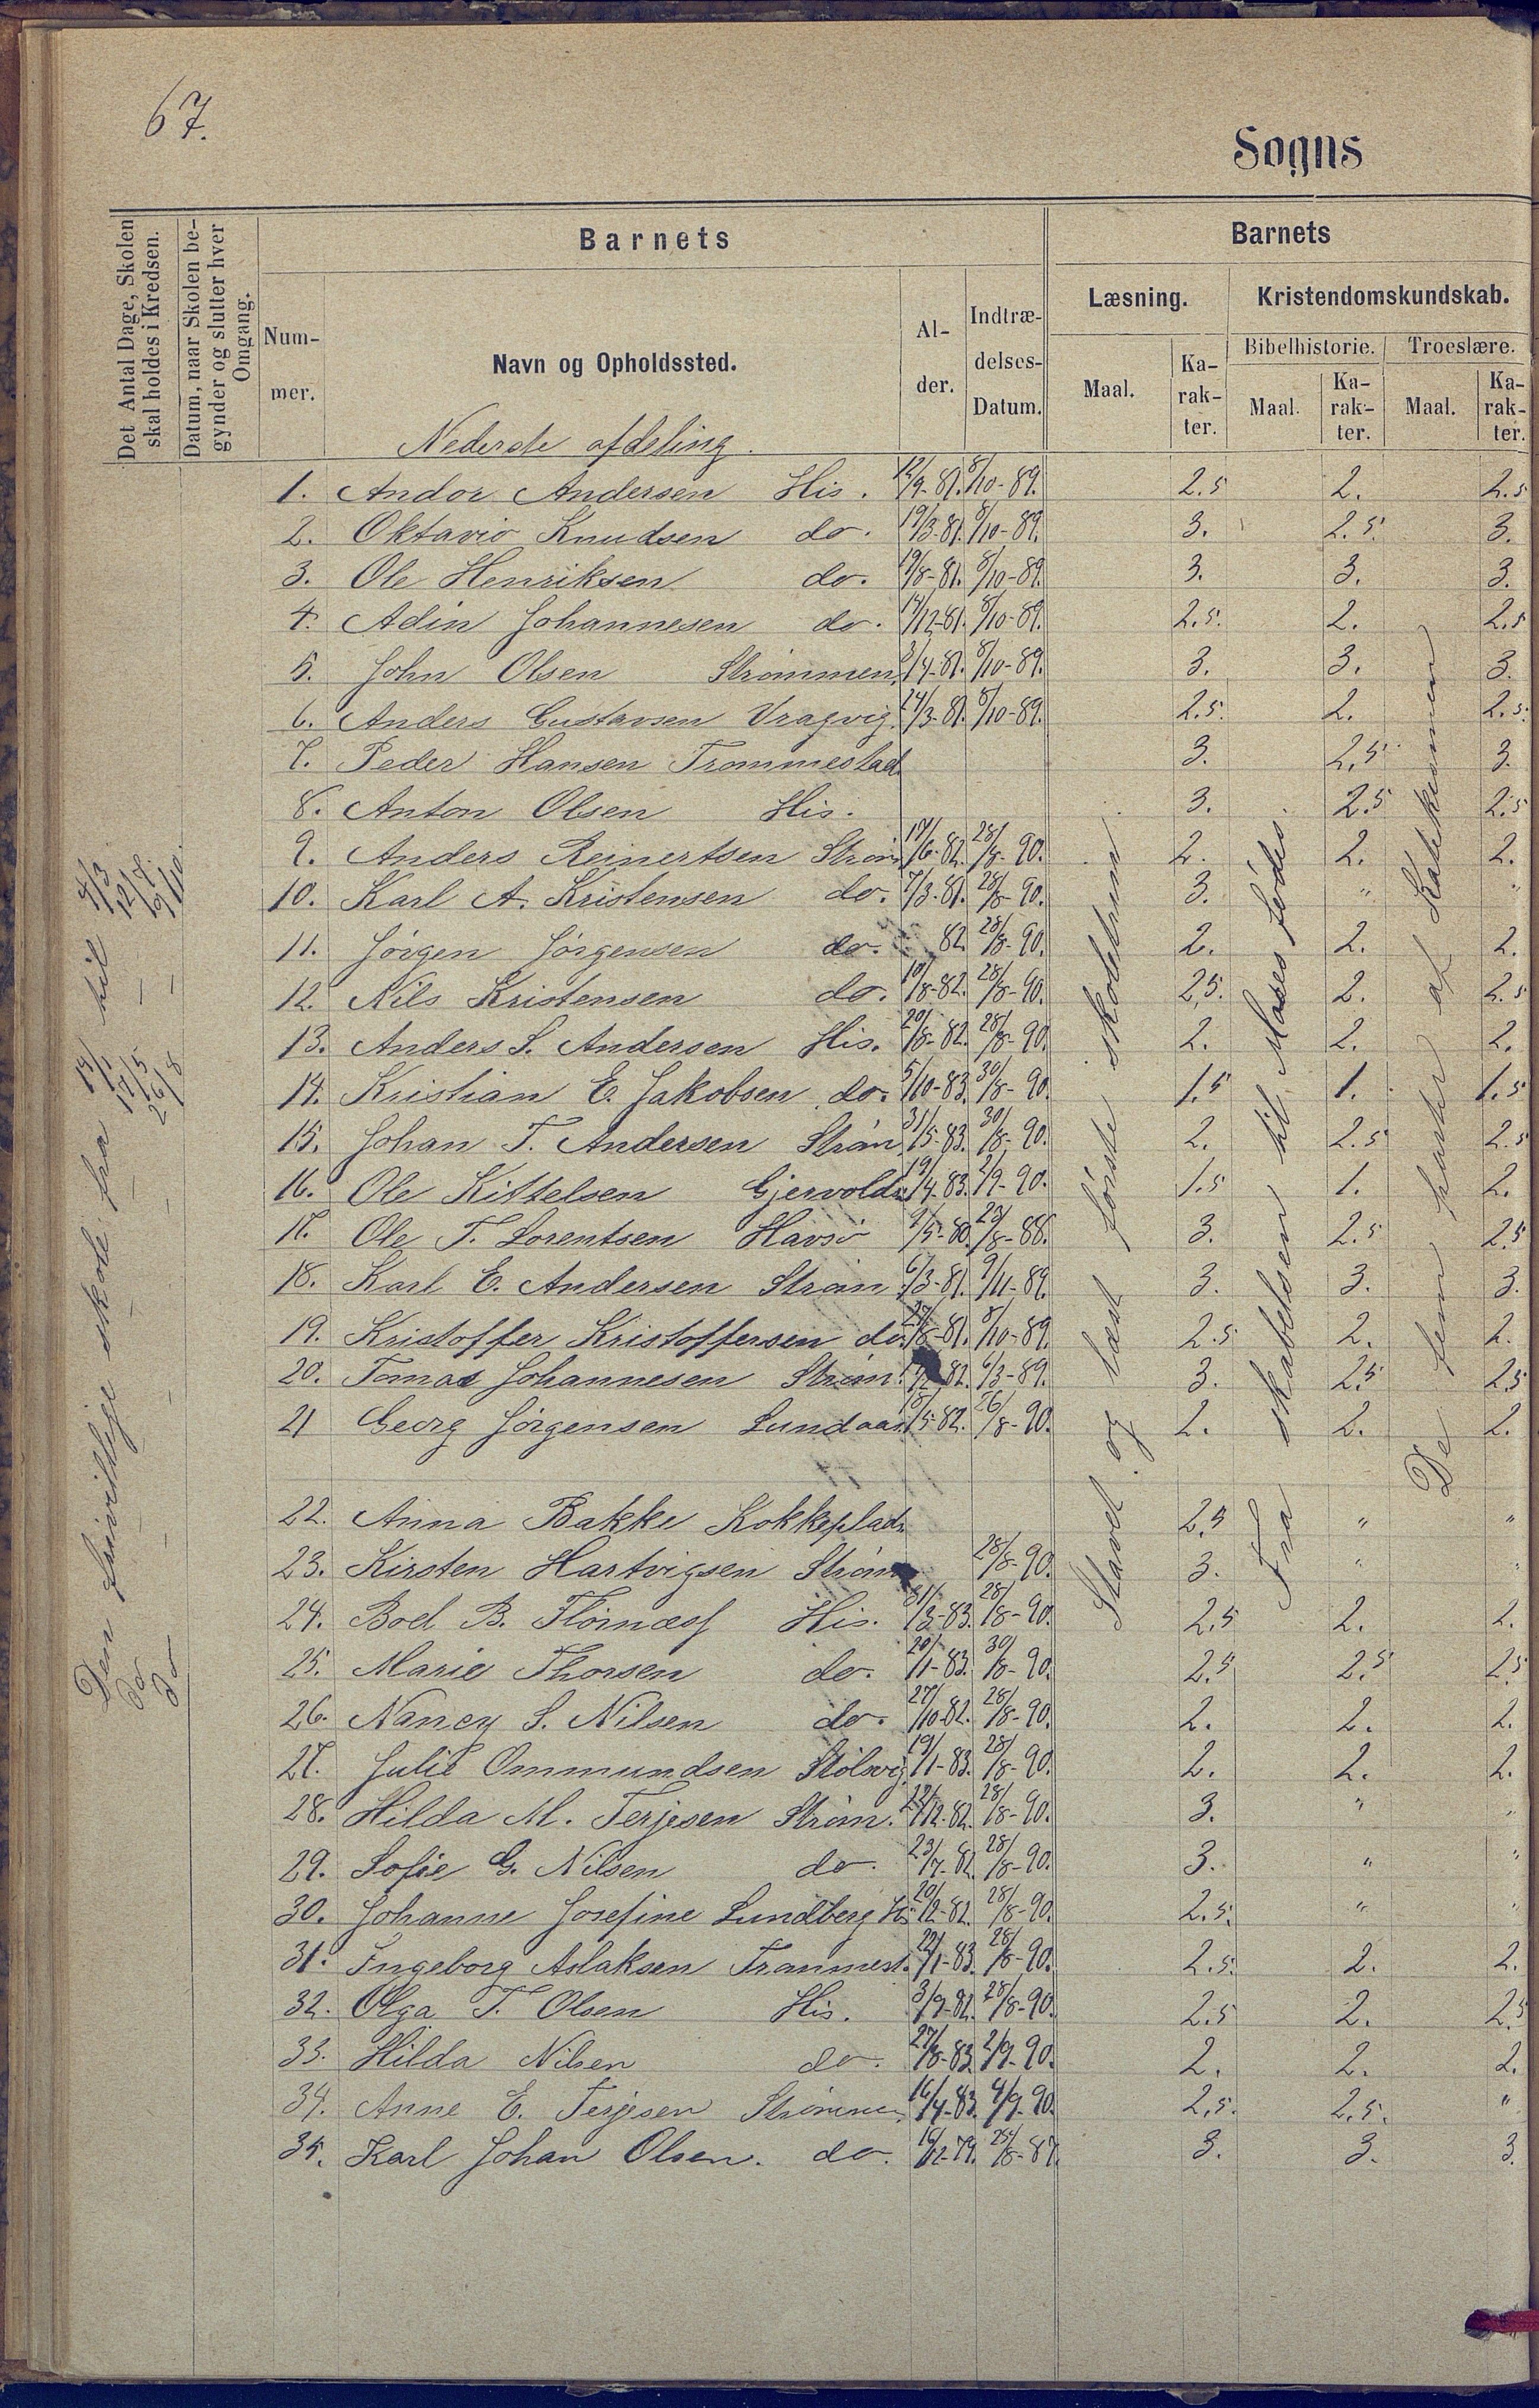 67.
Sogns
Det Antal Dage, Skolen skal holdes i Kredsen.
Datum, naar Skolen begynder og slutter hver Omgang.
Barnets
Nummer.
Navn og Opholdssted.
Alder.
Indtrædelses-Datum.
Barnets
Læsning.
Kristendomskundskab.
Maal.
Karakter.
Bibelhistorie.
Troeslære.
Maal.
Karakter.
Maal.
Karakter.
Nederste afdeling.
1. Andor Andersen His. 12/9-81. 8/10-89. 2.5 2. 2.5
2. Oktavio Knudsen do. 19/3-81. 8/10-89. 3. 2.5. 3.
3. Ole Henriksen do. 19/8-81. 8/10-89. 3. 3. 3.
4. Adin Johannesen do. 14/12-81. 8/10-89. 2.5. 2. 2.5
5. John Olsen Strømmen. 3/4-81. 8/10-89. 3. 3. 3.
6. Anders Gustavsen Vragvig. 24/3-81. 8/10-89. 2.5. 2. 2.5.
7. Peder Hansen Trommestad. 3. 2,5 3.
8. Anton Olsen His. 3. 2.5 2.5
9. Anders Reinertsen Strøm 17/6-82. 28/8-90. 2. 2. 2.
10. Karl A. Kristensen do. 7/3-81. 28/8-90. 3. " "
11. Jørgen Jørgensen do. 82. 28/8-90. 2. 2. 2.
12. Nils Kristensen do. 10/8-82. 28/8-90. 2,5. 2. 2.5
13. Anders S. Andersen His. 20/8-82. 28/8-90. 2. 2. 2.
14. Kristian E. Jakobsen do. 5/10-83. 30/8-90. 1.5 1. 1.5
15. Johan T. Andersen Strøm 31/5-83. 30/8-90. 2. 2.5 2.5
16. Ole Kittelsen Gjervolds 19/4-83. 2/9-90. 1.5 1. 2.
17. Ole T. Lorentsen Havsø 9/5-80. 23/8-88. 3. 2.5 2.5
18. Karl E. Andersen Strøm. 6/3-81. 9/11-89. 3. 3. 3.
19. Kristoffer Kristoffersen do. 27/8-81. 8/10-89. 2.5 2. 2.
20. Tomas Johannesen Strøm. 82. 6/3-89. 3. 2.5 2.5
21 Georg Jørgensen Lundaas. 18/5-82. 26/8-90. 2. 2. 2.
22. Anna Bakke Kokkeplads 2.5 " "
23. Kirsten Hartvigsen Strøm 28/8-90. 3. " "
24. Bod B. Flørnæss His. 31/3-83. 28/8-90. 2.5 2. 2.
25. Marie Thorsen do. 20/1-83. 30/8-90. 2.5 2.5 2.5
26. Nancy S. Nilsen do. 27/10-82. 28/8-90. 2. 2. 2.
27. Julie Ommundsen Stølsvig. 19/1-83. 28/8-90. 2. 2. 2.
28. Hilda M. Terjesen Strøm. 22/12-82. 28/8-90. 3. " "
29. Sofie G. Nilsen do. 23/7-82. 28/8-90. 3. " "
30. Johanne Josefine Lundberg His 20/12-82. 28/8-90. 2.5. " "
31. Ingeborg Aslaksen Trommest. 22/1-83. 28/8-90. 2.5. 2. 2.
32. Olga T. Olsen His. 3/9-82. 28/8-90. 2.5 2. 2.5
33. Hilda Nilsen do. 27/8-83. 2/9-90. 2. 2. 2.
34. Anne E. Terjesen Strømmen 16/4-83. 4/9-90. 2,5. 2.5. "
35. Karl Johan Olsen. do. 16/12-79. 25/8-87. 3. 3. 3.
Den frivillige skole fra 14/1 til 4/3
do — — 17/5 — 12/7.
do — — 26/8 — 9/10.
Stavet og læst første skoletrin.
Fra skabelsen til Moses fødes.
De fem parter af Katekismen